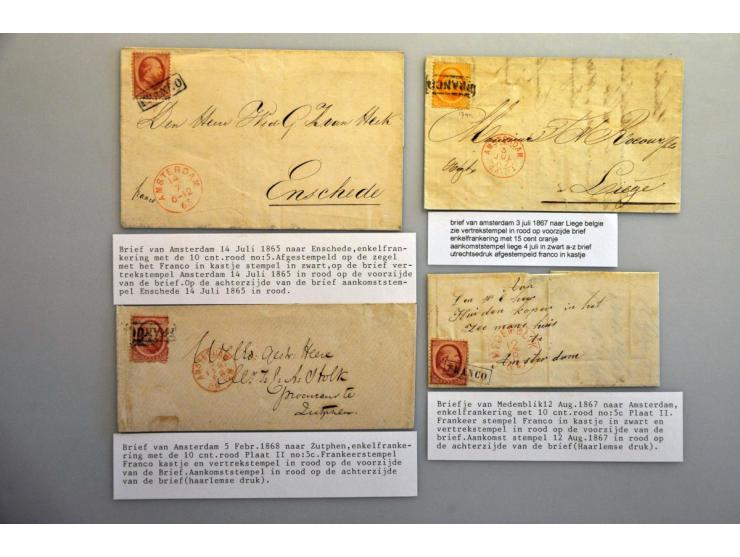 FRANCO
Den Heer
Enschede
franco
AMSTERDAM
14
7
6-12
65
Brief van Amsterdam 14 Juli 1865 naar Enschede,enkelfran-
kering met de 10 cnt.rood no:5.Afgestempeld op de zegel
met het Franco in kastje stempel in zwart,op de brief ver-
trekstempel Amsterdam 14 Juli 1865 in rood op de voorzijde
van de brief.Op de achterzijde van de brief aankomststem-
pel Enschede 14 Juli 1865 in rood.
FRANCO
Monsieur
AMSTERDAM
Liège
brief van amsterdam 3 juli 1867 naar Liege belgie
zie vertrekstempel in rood op voorzijde brief
enkelfrankering met 15 cent oranje
aankomststempel liege 4 juli in zwart a-z brief
utrechtsedruk afgestempeld franco in kastje
FRANCO
AMSTERDAM
Zutphen
Brief van Amsterdam 5 Febr.1868 naar Zutphen,enkelfranke-
ring met de 10 cnt.rood Plaat II no:5c.Frankeerstempel
Franco kastje en vertrekstempel in rood op de voorzijde
van de Brief.Aankomststempel in rood op de achterzijde
van de brief(haarlemse druk).
Aan
in het
Zee mans huis
te
Amsterdam
FRANCO
Briefje van Medemblik12 Aug.1867 naar Amsterdam,
enkelfrankering met 10 cnt.rood no:5c Plaat II.
Frankeer stempel Franco in kastje in zwart en
vertrekstempel in rood op de voorzijde van de
brief.Aankomst stempel 12 Aug.1867 in rood op
de achterzijde van de brief(Haarlemse druk).